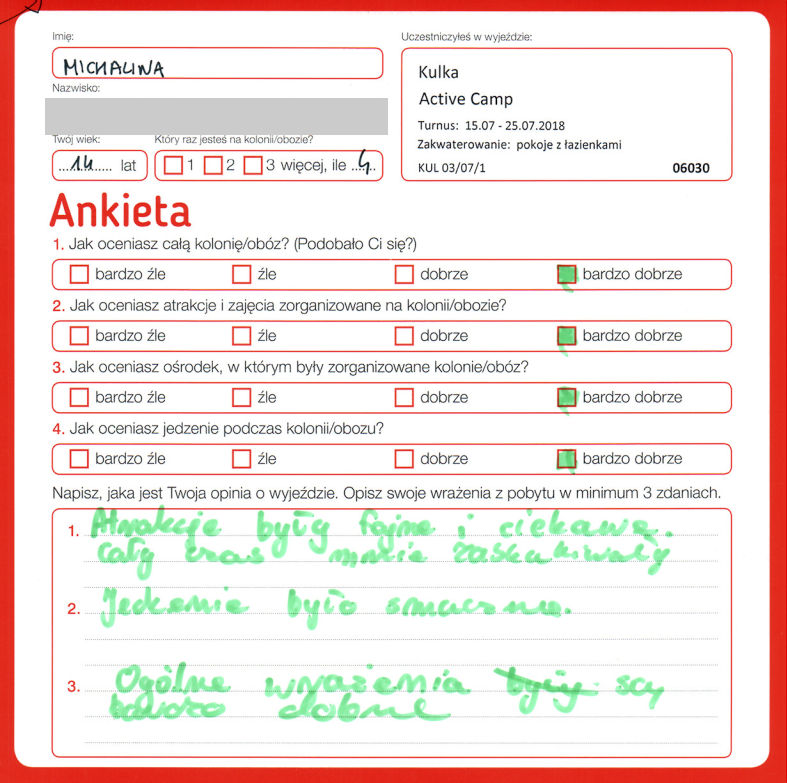 Imię:
Uczestniczyłeś w wyjeździe:
MICHALINA
Kulka
Nazwisko:
Active Camp
Turnus: 15.07 - 25.07.2018
Twój wiek:
Który raz jesteś na kolonii/obozie?
Zakwaterowanie: pokoje z łazienkami
14 lat
1 2 3 więcej, ile 4
KUL 03/07/1
06030
Ankieta
1. Jak oceniasz całą kolonię/obóz? (Podobało Ci się?)
bardzo źle źle dobrze bardzo dobrze
2. Jak oceniasz atrakcje i zajęcia zorganizowane na kolonii/obozie?
bardzo źle źle dobrze bardzo dobrze
3. Jak oceniasz ośrodek, w którym były zorganizowane kolonie/obóz?
bardzo źle źle dobrze bardzo dobrze
4. Jak oceniasz jedzenie podczas kolonii/obozu?
bardzo źle źle dobrze bardzo dobrze
Napisz, jaka jest Twoja opinia o wyjeździe. Opisz swoje wrażenia z pobytu w minimum 3 zdaniach.
1. Atrakcje były fajne i ciekawe.
cały czas mnie zaskakiwały
2. Jedzenie było smaczne.
3. Ogólne wrażenia były są
bardzo dobre